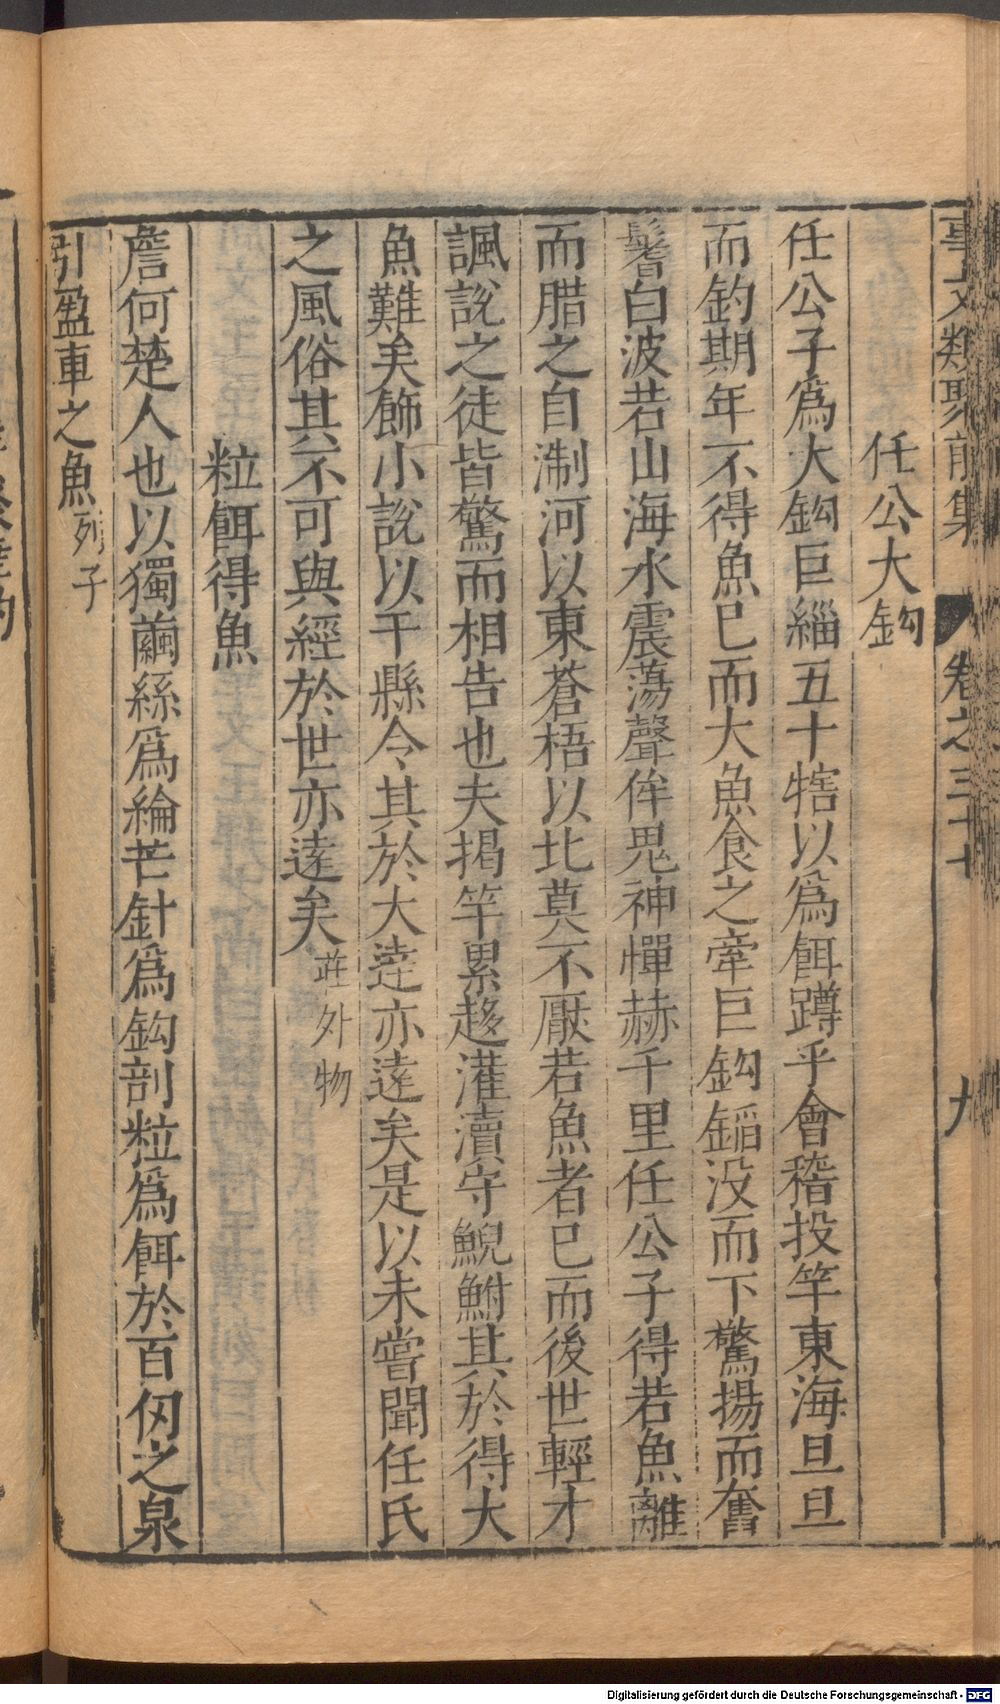 事文類聚前集 卷之三十七 九
任公大鈎
任公子爲大鈎巨緇五十犗以爲餌蹲乎會稽投竿東海旦旦
而釣期年不得魚巳而大魚食之牽巨鈎錎没而下驚揚而奮
鬐白波若山海水震蕩聲侔鬼神憚赫千里任公子得若魚離
而腊之自淛河以東蒼梧以北莫不厭若魚者巳而後世輕才
諷說之徒皆驚而相告也夫揭竿累趍灌瀆守鯢鮒其於得大
魚難矣飾小說以干縣令其於大逹亦逺矣是以未嘗聞任氏
之風俗其不可與經於世亦逺矣 莊外物
粒餌得魚
詹何楚人也以獨繭絲爲綸芒針爲鈎剖粒爲餌於百仞之泉
引盈車之魚 列子
Digitalisierung gefördert durch die Deutsche Forschungsgemeinschaft - DFG